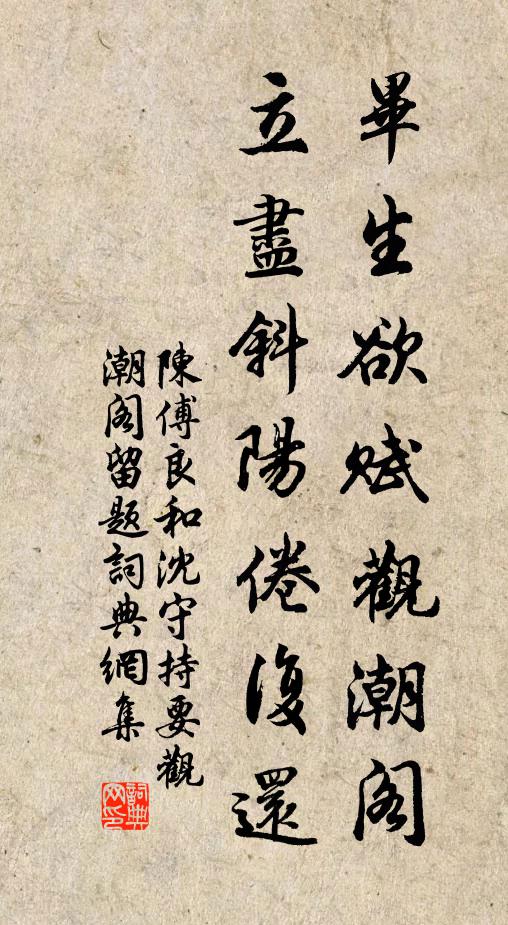 畢生欲賦觀潮閣
立盡斜陽倦復還
陳傅良和沈守持要觀
潮閣留題詞典網集
詞典網印